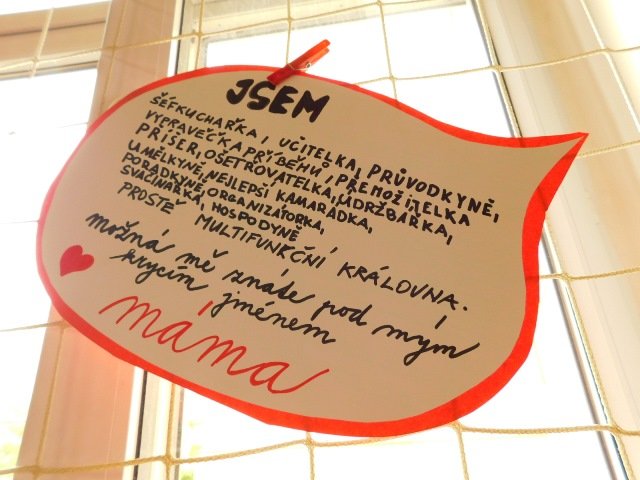 JSEM
ŠÉFKUCHAŘKA, UČITELKA, PRŮVODKYNĚ,
VYPRAVEČKA PŘÍBĚHU, PŘEMOŽITELKA
PŘÍŠER, OŠETŘOVATELKA, ÚDRŽBÁŘKA,
UMĚLKYNĚ, NEJLEPŠÍ KAMARÁDKA,
POŘÁDKYNĚ, ORGANIZÁTORKA,
SVAČINÁŘKA, HOSPODYNĚ
PROSTĚ MULTIFUNKČNÍ KRÁLOVNA.
možná mě znáte pod mým
krycím jménem
máma